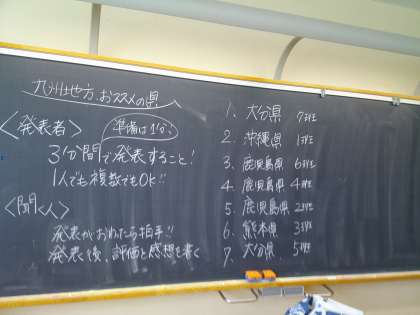 九州地方、おススメの県
<発表者> 準備は1分、
3分間で発表すること!
1人でも複数でもOK!!
<聞く人>
発表がおわったら拍手!!
発表後、評価と感想を書く
1、大分県 7班
2、沖縄県 1班
3、鹿児島県 6班
4、鹿児島県 4班
5、鹿児島県 2班
6、熊本県 3班
7、大分県 5班